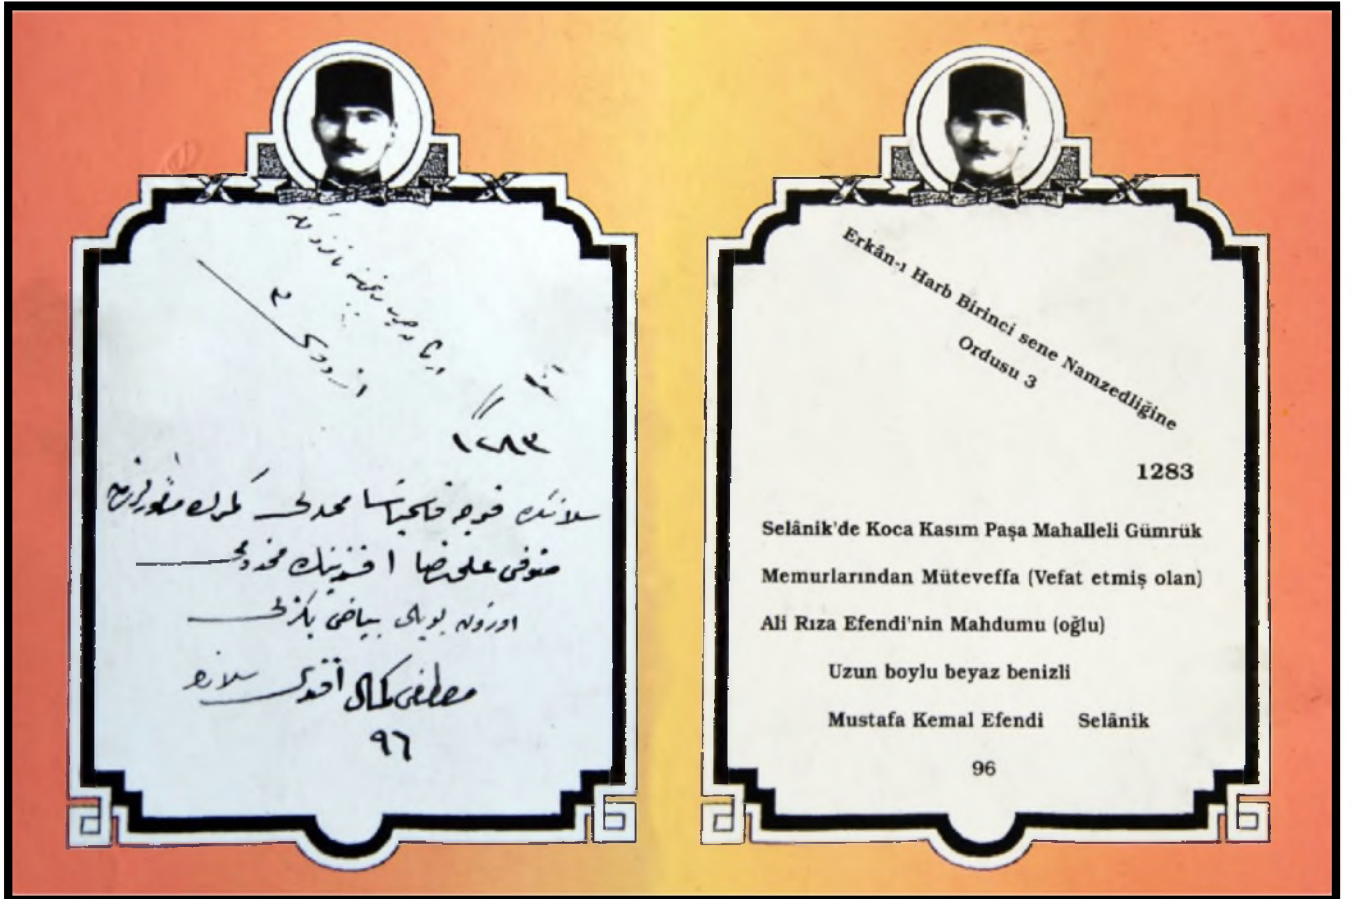 ۳
اردوسی
۱۲۸۳
سلانیكده قوجه قاسم پاشا محله‌لی كمرك
متوفی علی رضا افندینك مخدومی
اوزون بویلی بیاض بكزلی
مصطفی كمال افندی سلانیك
۹٦
Erkân-ı Harb Birinci sene Namzedliğine
Ordusu 3
1283
Selânik'de Koca Kasım Paşa Mahalleli Gümrük
Memurlarından Müteveffa (Vefat etmiş olan)
Ali Rıza Efendi'nin Mahdumu (oğlu)
Uzun boylu beyaz benizli
Mustafa Kemal Efendi Selânik
96